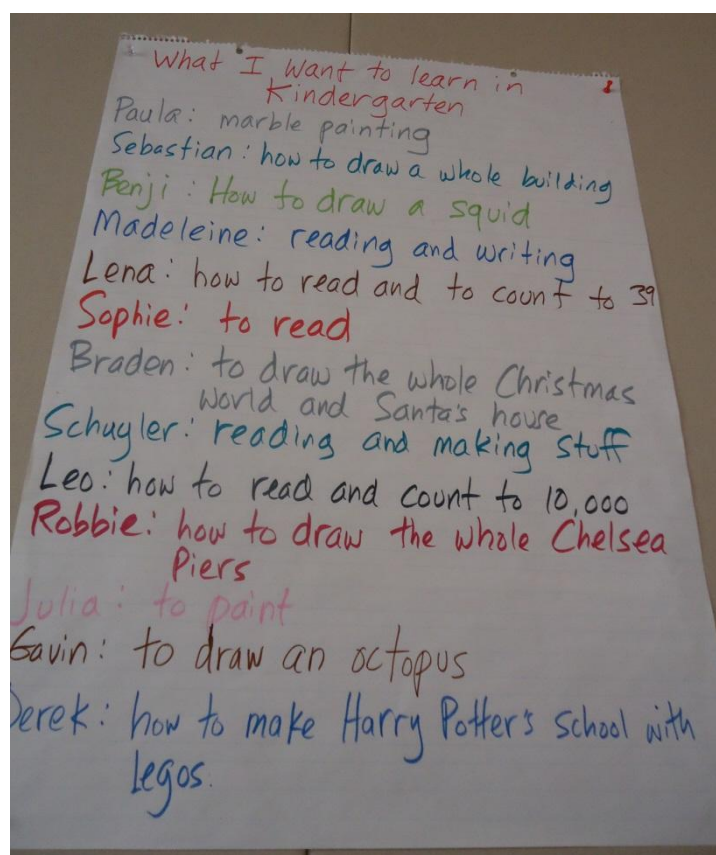 What I want to learn in
Kindergarten
Paula: marble painting
Sebastian: how to draw a whole building
Benji: How to draw a squid
Madeleine: reading and writing
Lena: how to read and to count to 39
Sophie: to read
Braden: to draw the whole Christmas
world and Santa's house
Schuyler: reading and making stuff
Leo: how to read and count to 10,000
Robbie: how to draw the whole Chelsea
Piers
Julia: to paint
Gavin: to draw an octopus
Derek: how to make Harry Potter's school with
Legos.